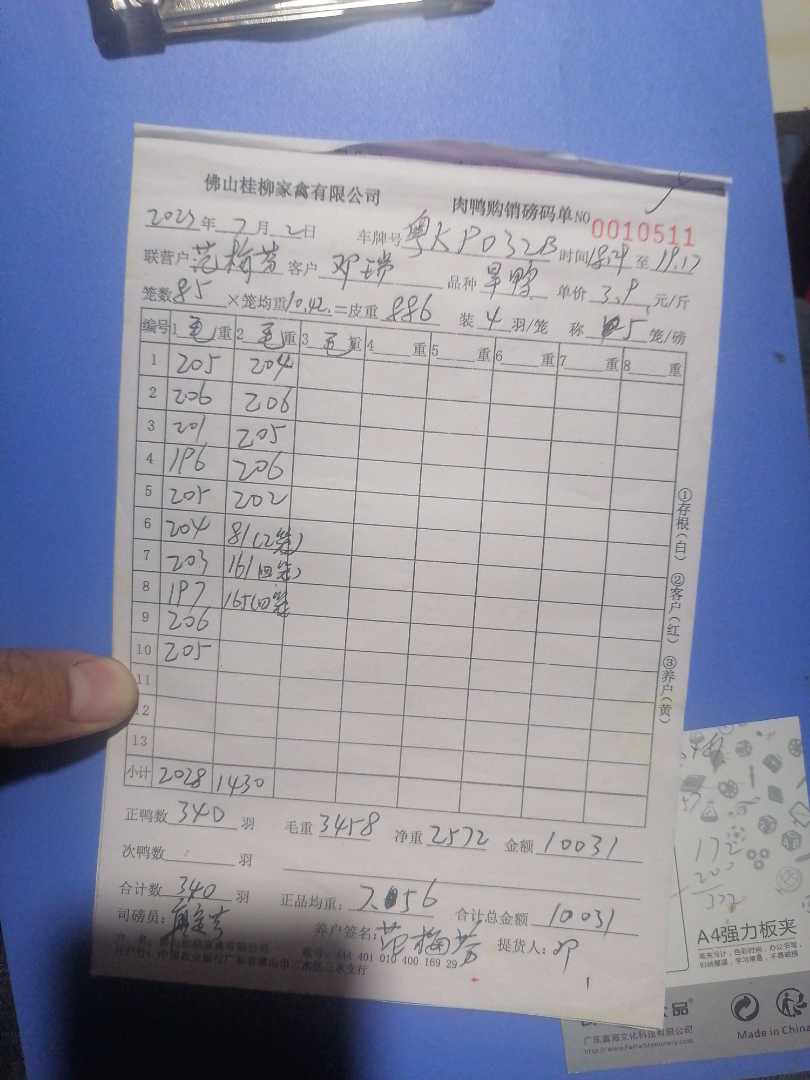 佛山桂柳家禽有限公司 肉鸭购销磅码单 NO 0010511
2023年7月2日 车牌号粤KP032B 时间18:29至19.17
联营户范梅芳 客户邓瑞 品种旱鸭 单价3.9元/斤
笼数85×笼均重10.42.=皮重886 装4羽/笼 称5笼/磅
编号 1毛重 2毛重 3毛重 4重 5重 6重 7重 8重
1 205 204
2 206 206
3 201 205
4 196 206
5 205 202
6 204 81(2笼)
7 203 161(四笼)
8 197 165(四笼
9 206
10 205
11
12
13
小计 2028 1430
正鸭数340羽 毛重3458 净重2572 金额10031
次鸭数 羽
合计数340羽 正品均重:7.56 合计总金额10031
司磅员: 养户签名:范梅芳 提货人:邓
444 401 010 400 169 29
①存根(白) ②客户(红) ③养户(黄)
172
200
372
A4强力板夹
品
广东富海文化科技有限公司
Made in China